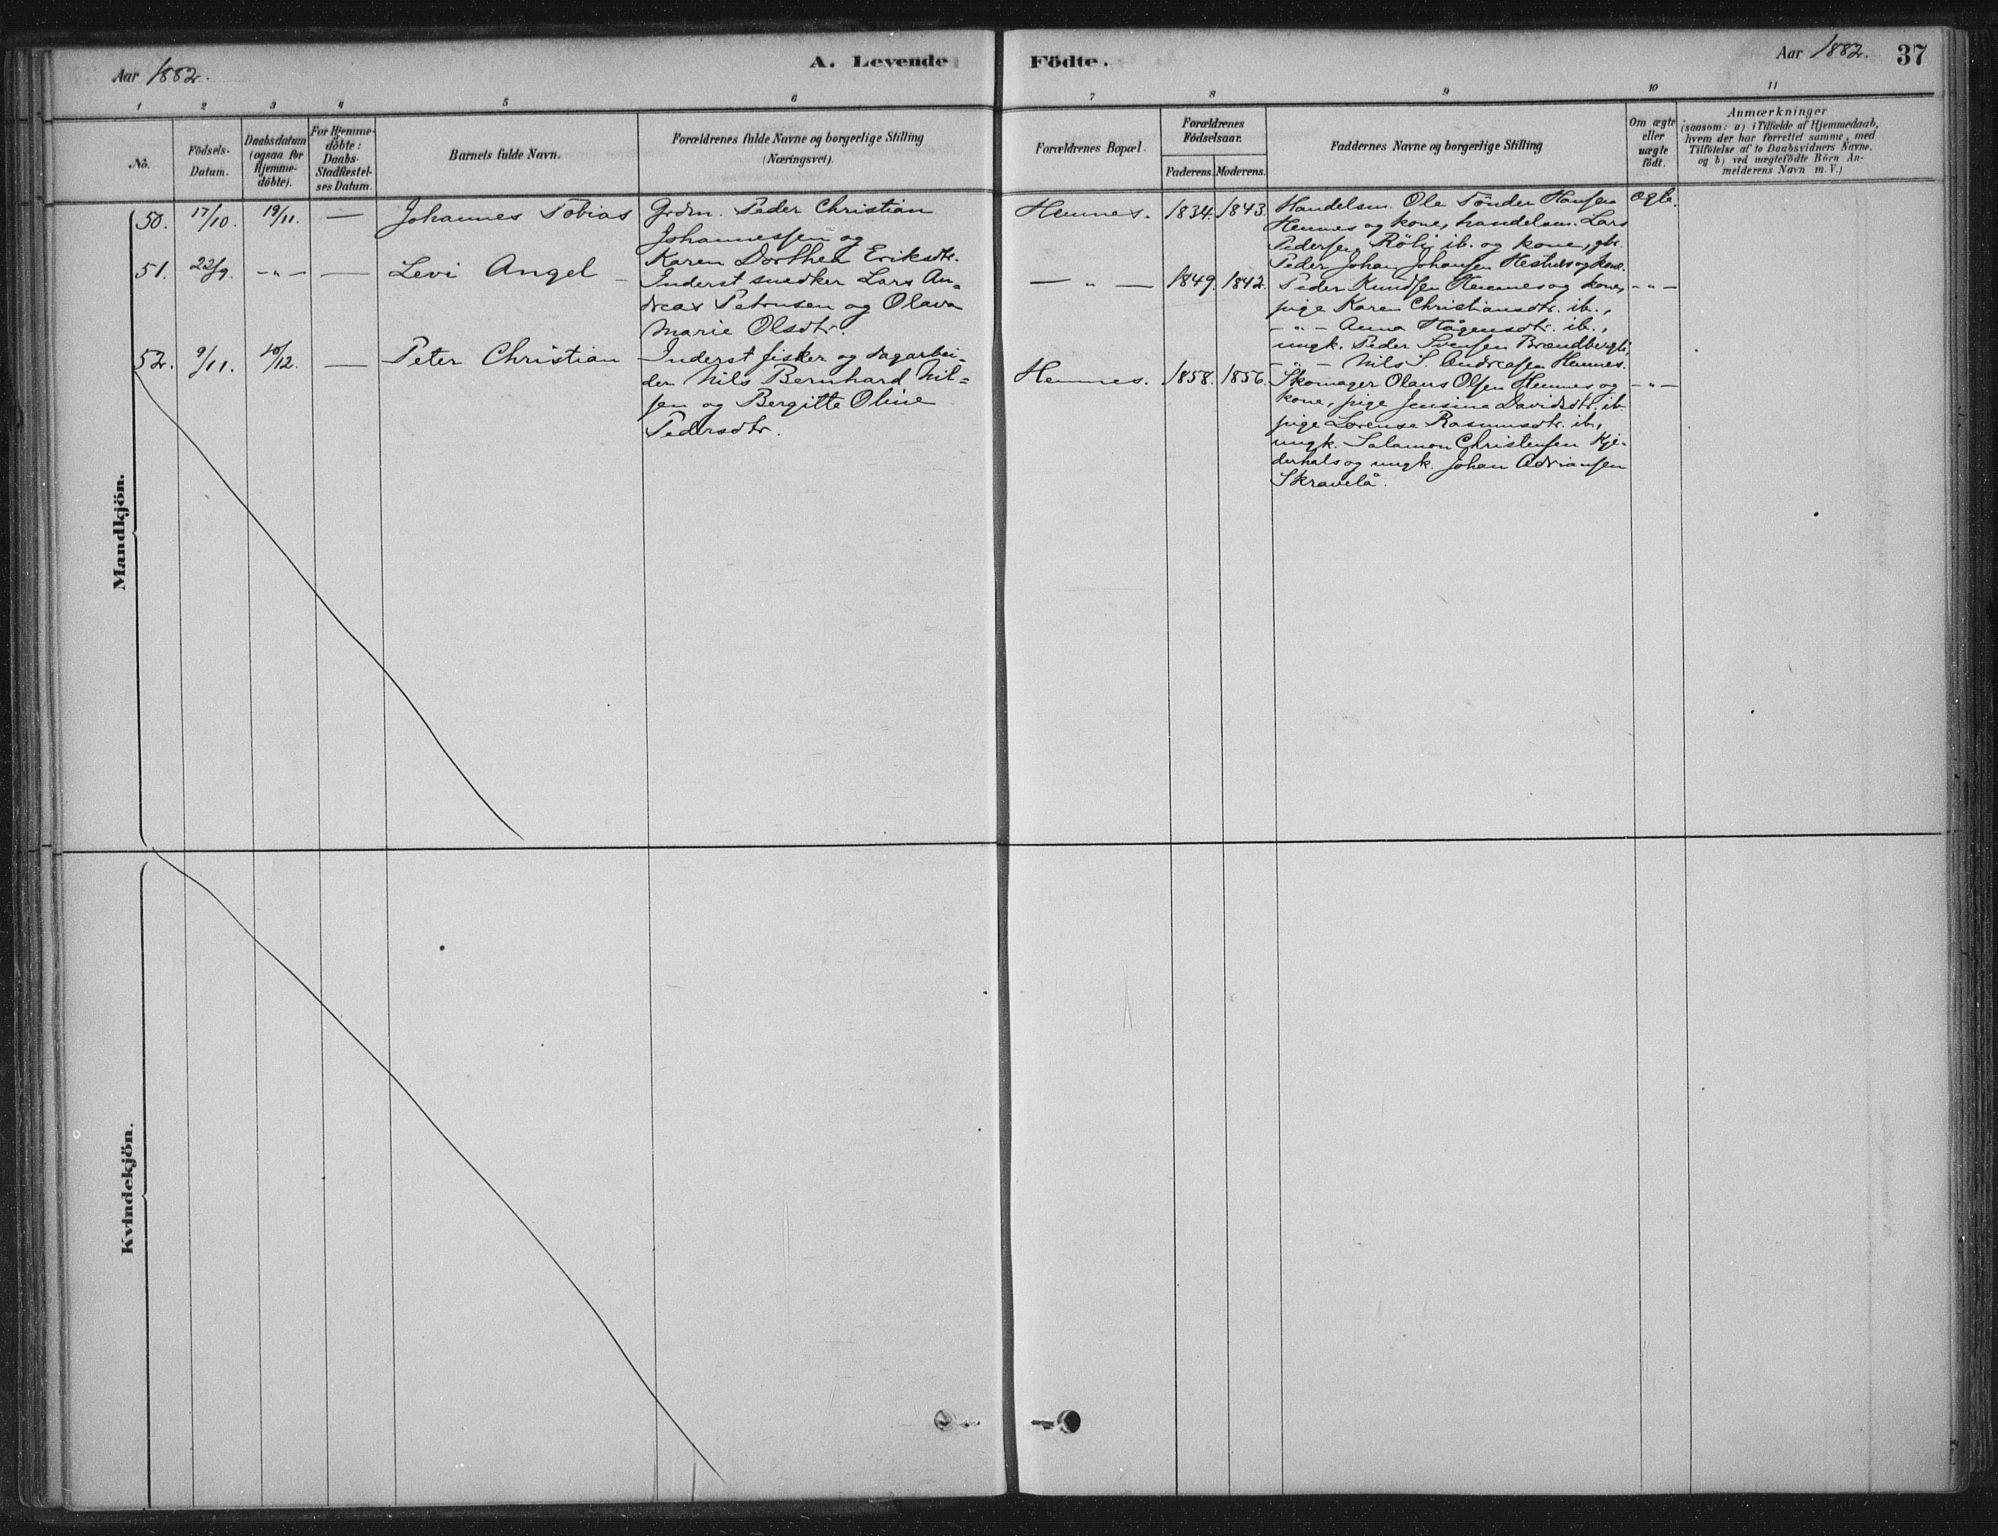 Aar 1882.
A. Levende Födte.
Aar 1882. 37
1 2 3 4 5 6 7 8 9 10 11
No.
Födsels-
Datum.
Daabsdatum
(ogsaa for
Hjemme-
döbte).
For Hjemme-
döbte:
Daabs-
Stadfæstel-
ses Datum.
Barnets fulde Navn.
Forældrenes fulde Navne og borgerlige Stilling
(Næringsvei).
Forældrenes Bopæl.
Forældrenes
Födselsaar.
Faderens. Moderens.
Faddernes Navne og borgerlige Stilling
Om ægte
eller
uægte
födt.
Anmærkninger
(saasom: a) i Tilfælde af Hjemmedaab,
hvem der har forrettet samme, med
Tilföielse af to Daabsvidners Navne,
og b) ved uægtefödte Börn An-
melderens Navn m. V.)
Mandkjön.
50. 17/10. 19/11. — Johannes Tobias
Grdm. Peder Christian
Johannessen og
Karen Dorthea Eriksdtr.
Hennes. 1834. 1843.
Handelsm. Ole Tönder Hansen
Hennes og kone, handelsm. Lars
Pedersen Röli ib. og kone, gbr.
Peder Johan Johansen Hestnes og kone.
Ægte.
51. 22/9. -„- — Levi Angel
Inderst snedker Lars An-
dreas Petersen og Olava
Marie Olsdtr.
— „ — 1849. 1842.
Peder Knudsen Hennes og kone,
pige Karen Christiansdtr. ib.,
-„- Anna Hågensdtr. ib.,
ungk. Peder Svensen
-„- Nils S. Andreasen Hennes.
-„-
52. 9/11. 10/12. — Peter Christian
Inderst fisker og dagarbei-
der Nils Bernhard Nil-
sen og Bergitte Oline
Pedersdtr.
Hennes. 1858. 1856.
Skomager Olaus Olsen Hennes og
kone, pige Jensine Davidsdtr. ib.
pige Lorense Rasmusdtr. ib.,
ungk. Salamon Christensen Kje-
derhals og ungk. Johan Adriansen
Skravelå.
-„-
Kvindekjön.